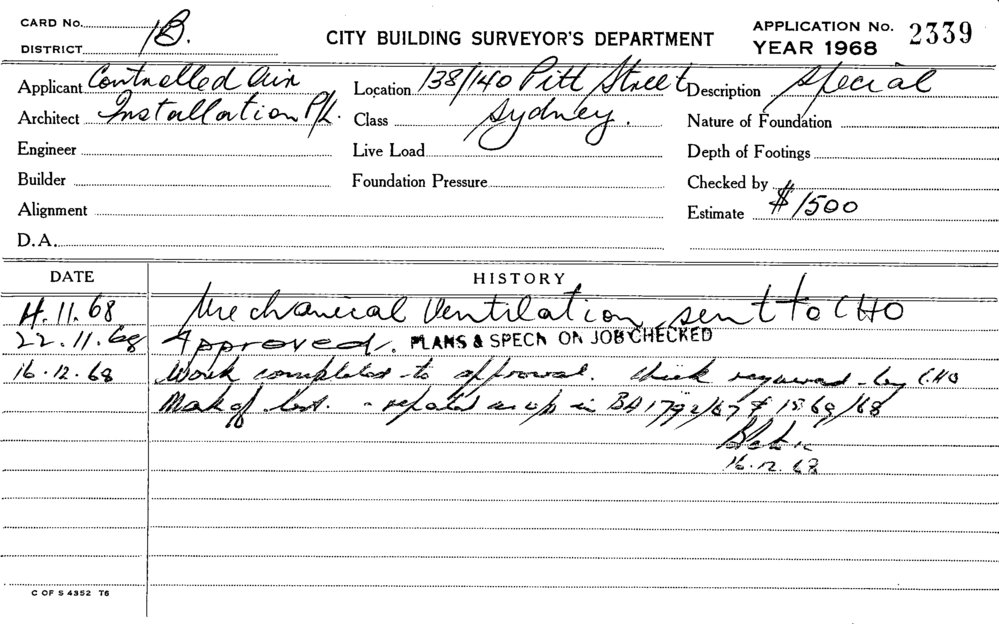 CARD No.
DISTRICT 1B.
CITY BUILDING SURVEYOR'S DEPARTMENT
APPLICATION No. 2339
YEAR 1968
Applicant Controlled Air
Location 138/140 Pitt Street
Description Special
Architect Installation P/L.
Class Sydney.
Nature of Foundation
Engineer
Live Load
Depth of Footings
Builder
Foundation Pressure
Checked by
Alignment
Estimate $1500
D.A.
DATE
HISTORY
4.11.68 Mechanical Ventilation sent to CHO
22.11.68 Approved. PLANS & SPECN ON JOB CHECKED
16.12.68 Work completed to approval. Check required by CHO
in BA 1792/67 &
16.12.68
C OF S 4352 T6